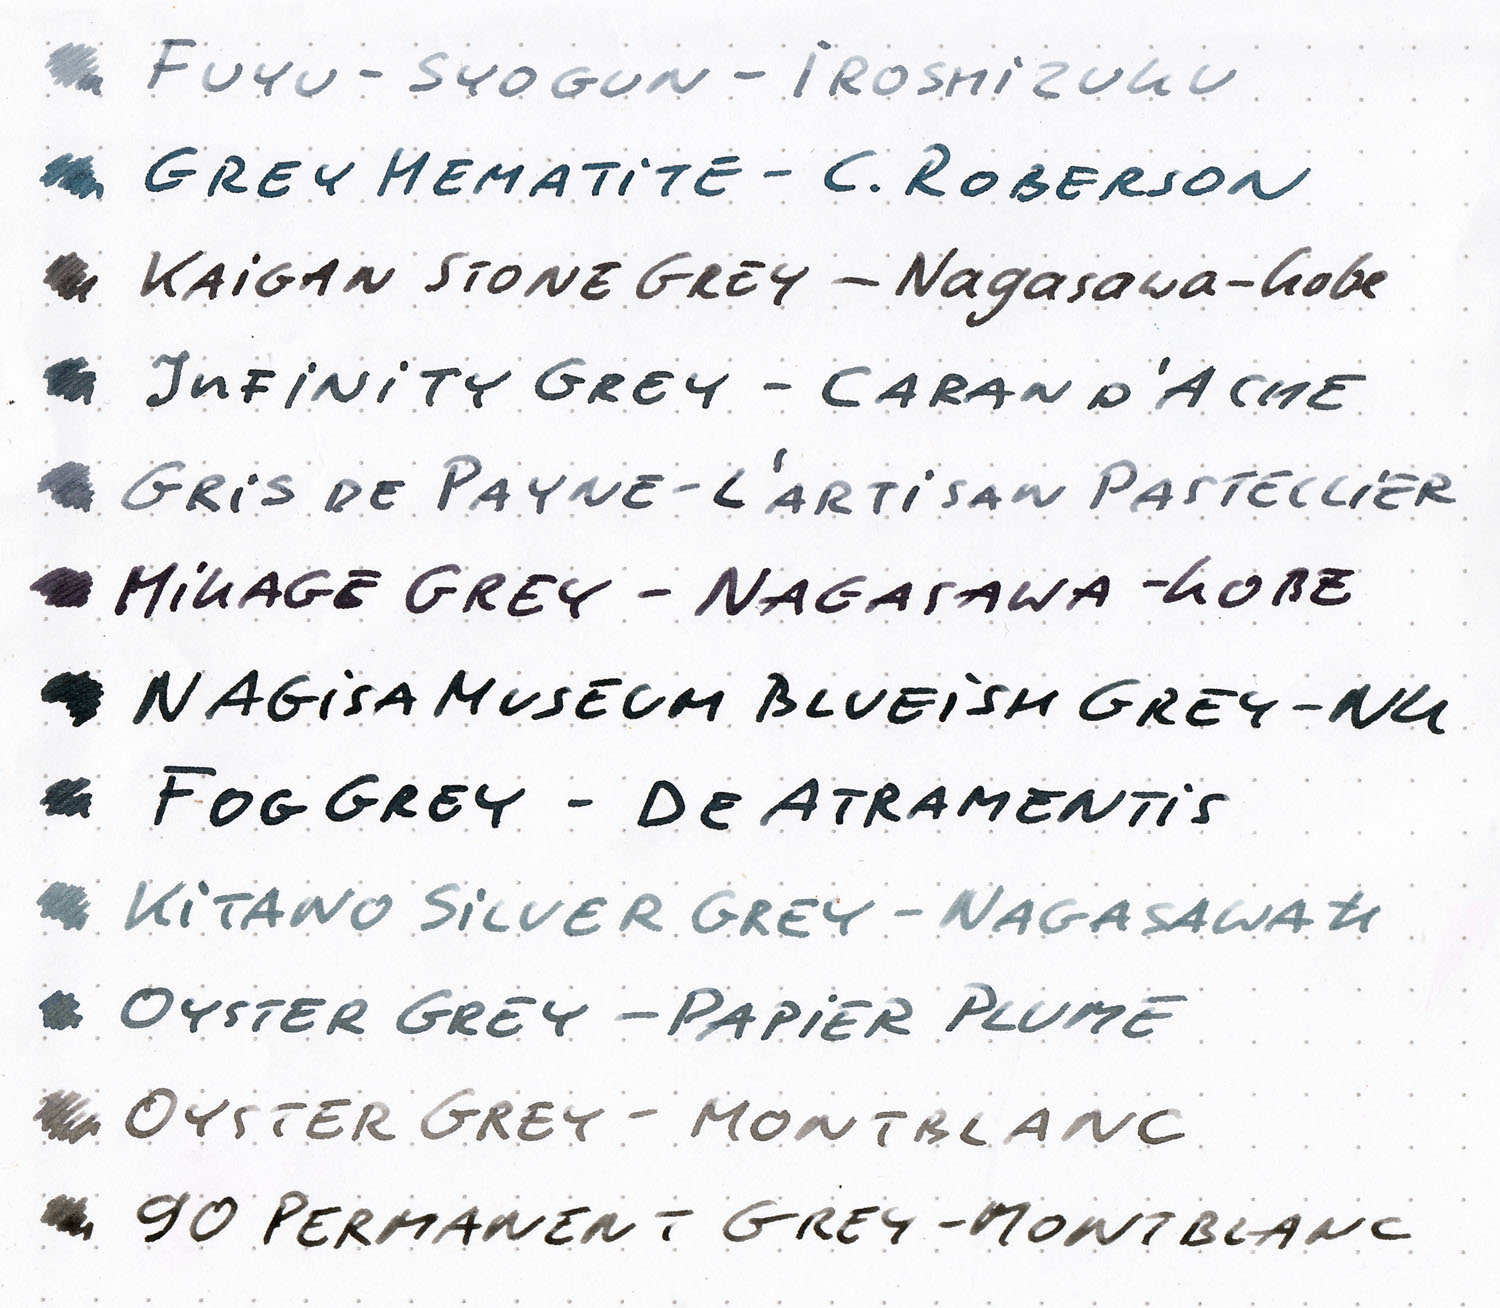 FUYU - SYOGUN - IROSHIZUKU
GREY HEMATITE - C. ROBERSON
KAIGAN STONE GREY – Nagasawa-kobe
INFINITY GREY - CARAN D'ACHE
GRIS DE PAYNE - L'ARTISAN PASTELLIER
MIKAGE GREY - NAGASAWA - KOBE
NAGISA MUSEUM BLUEISH GREY - NK
FOG GREY - DE ATRAMENTIS
KITANO SILVER GREY - NAGASAWA K
OYSTER GREY - PAPIER PLUME
OYSTER GREY - MONTBLANC
90 PERMANENT GREY - MONTBLANC